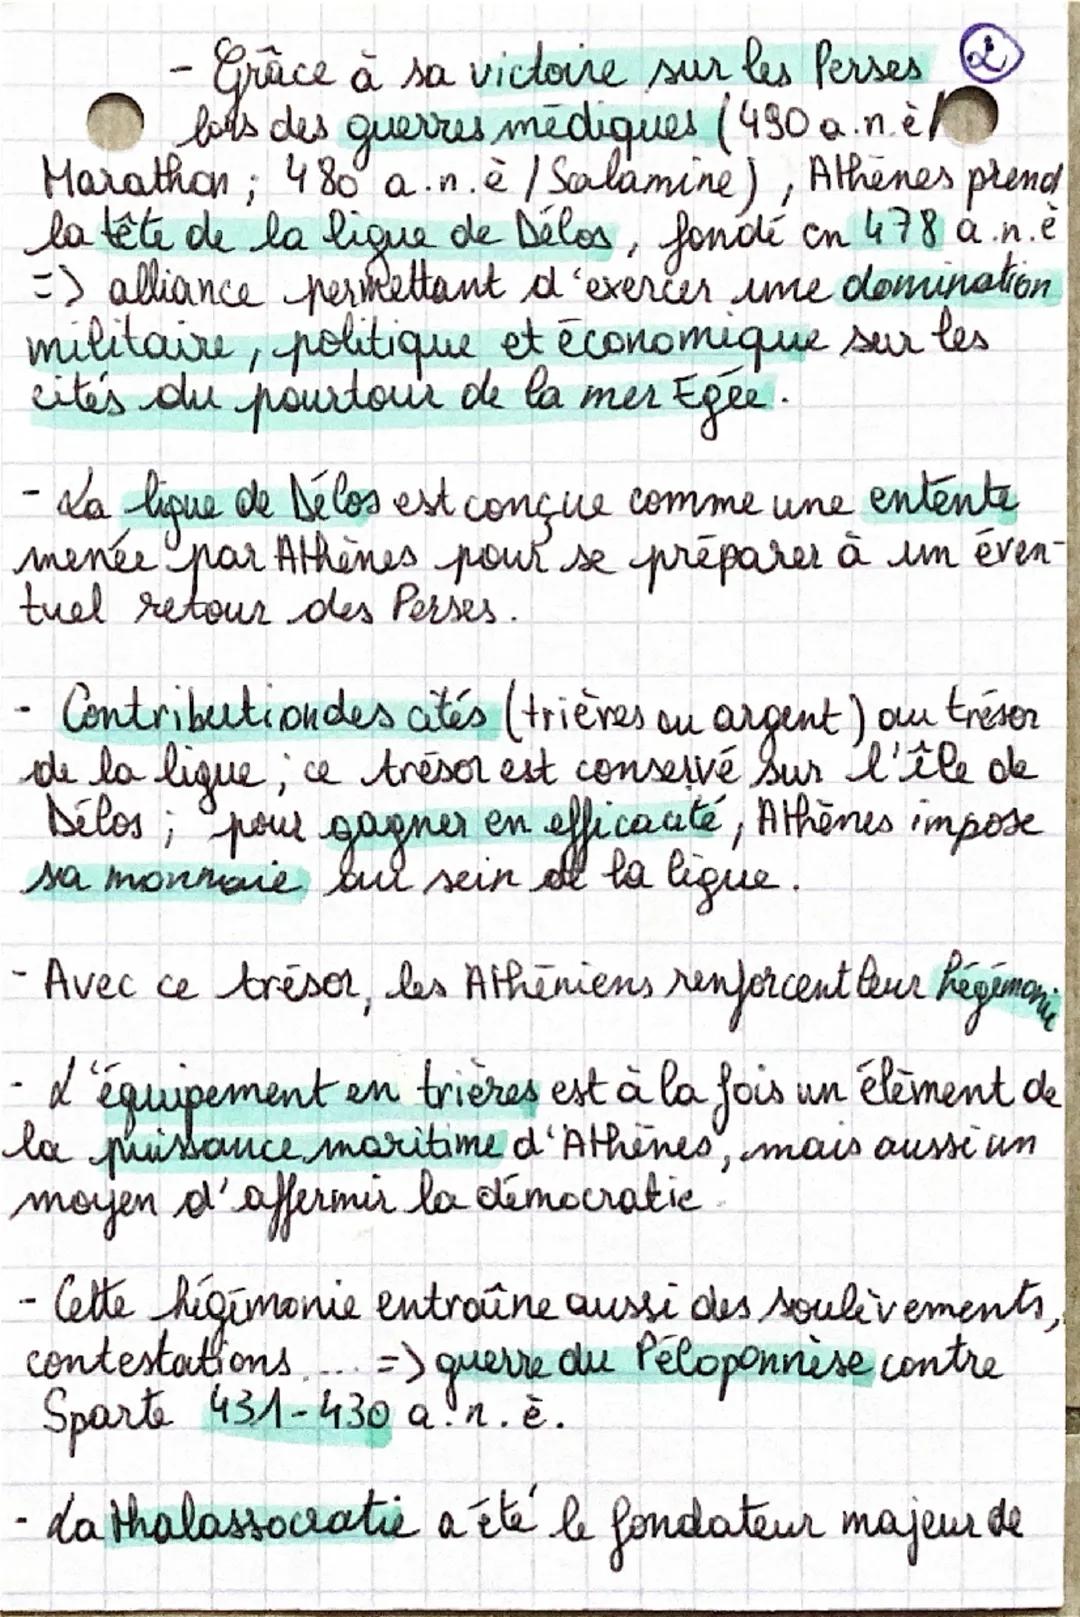 2
- Grâce à sa victoire sur les Perses
lors des guerres médiques (490 a.n.è/
Marathon ; 480 a.n.è / Salamine), Athènes prend
la tête de la ligue de Délos, fondé en 478 a.n.è
=> alliance permettant d'exercer une domination
militaire, politique et économique sur les
cités du pourtour de la mer Egée.
- La ligue de Délos est conçue comme une entente
menée par Athènes pour se préparer à un éven-
tuel retour des Perses.
- Contribution des cités (trières ou argent) au trésor
de la ligue ; ce trésor est conservé sur l'île de
Délos ; pour gagner en efficacité, Athènes impose
sa monnaie au sein de la ligue.
- Avec ce trésor, les Athéniens renforcent leur hégémonie
- L'équipement en trières est à la fois un élément de
la puissance maritime d'Athènes, mais aussi un
moyen d'affermir la démocratie.
- Cette hégémonie entraîne aussi des soulèvements,
contestations.... => guerre du Péloponnèse contre
Sparte 431-430 a.n.è.
- La thalassocratie a été le fondateur majeur de